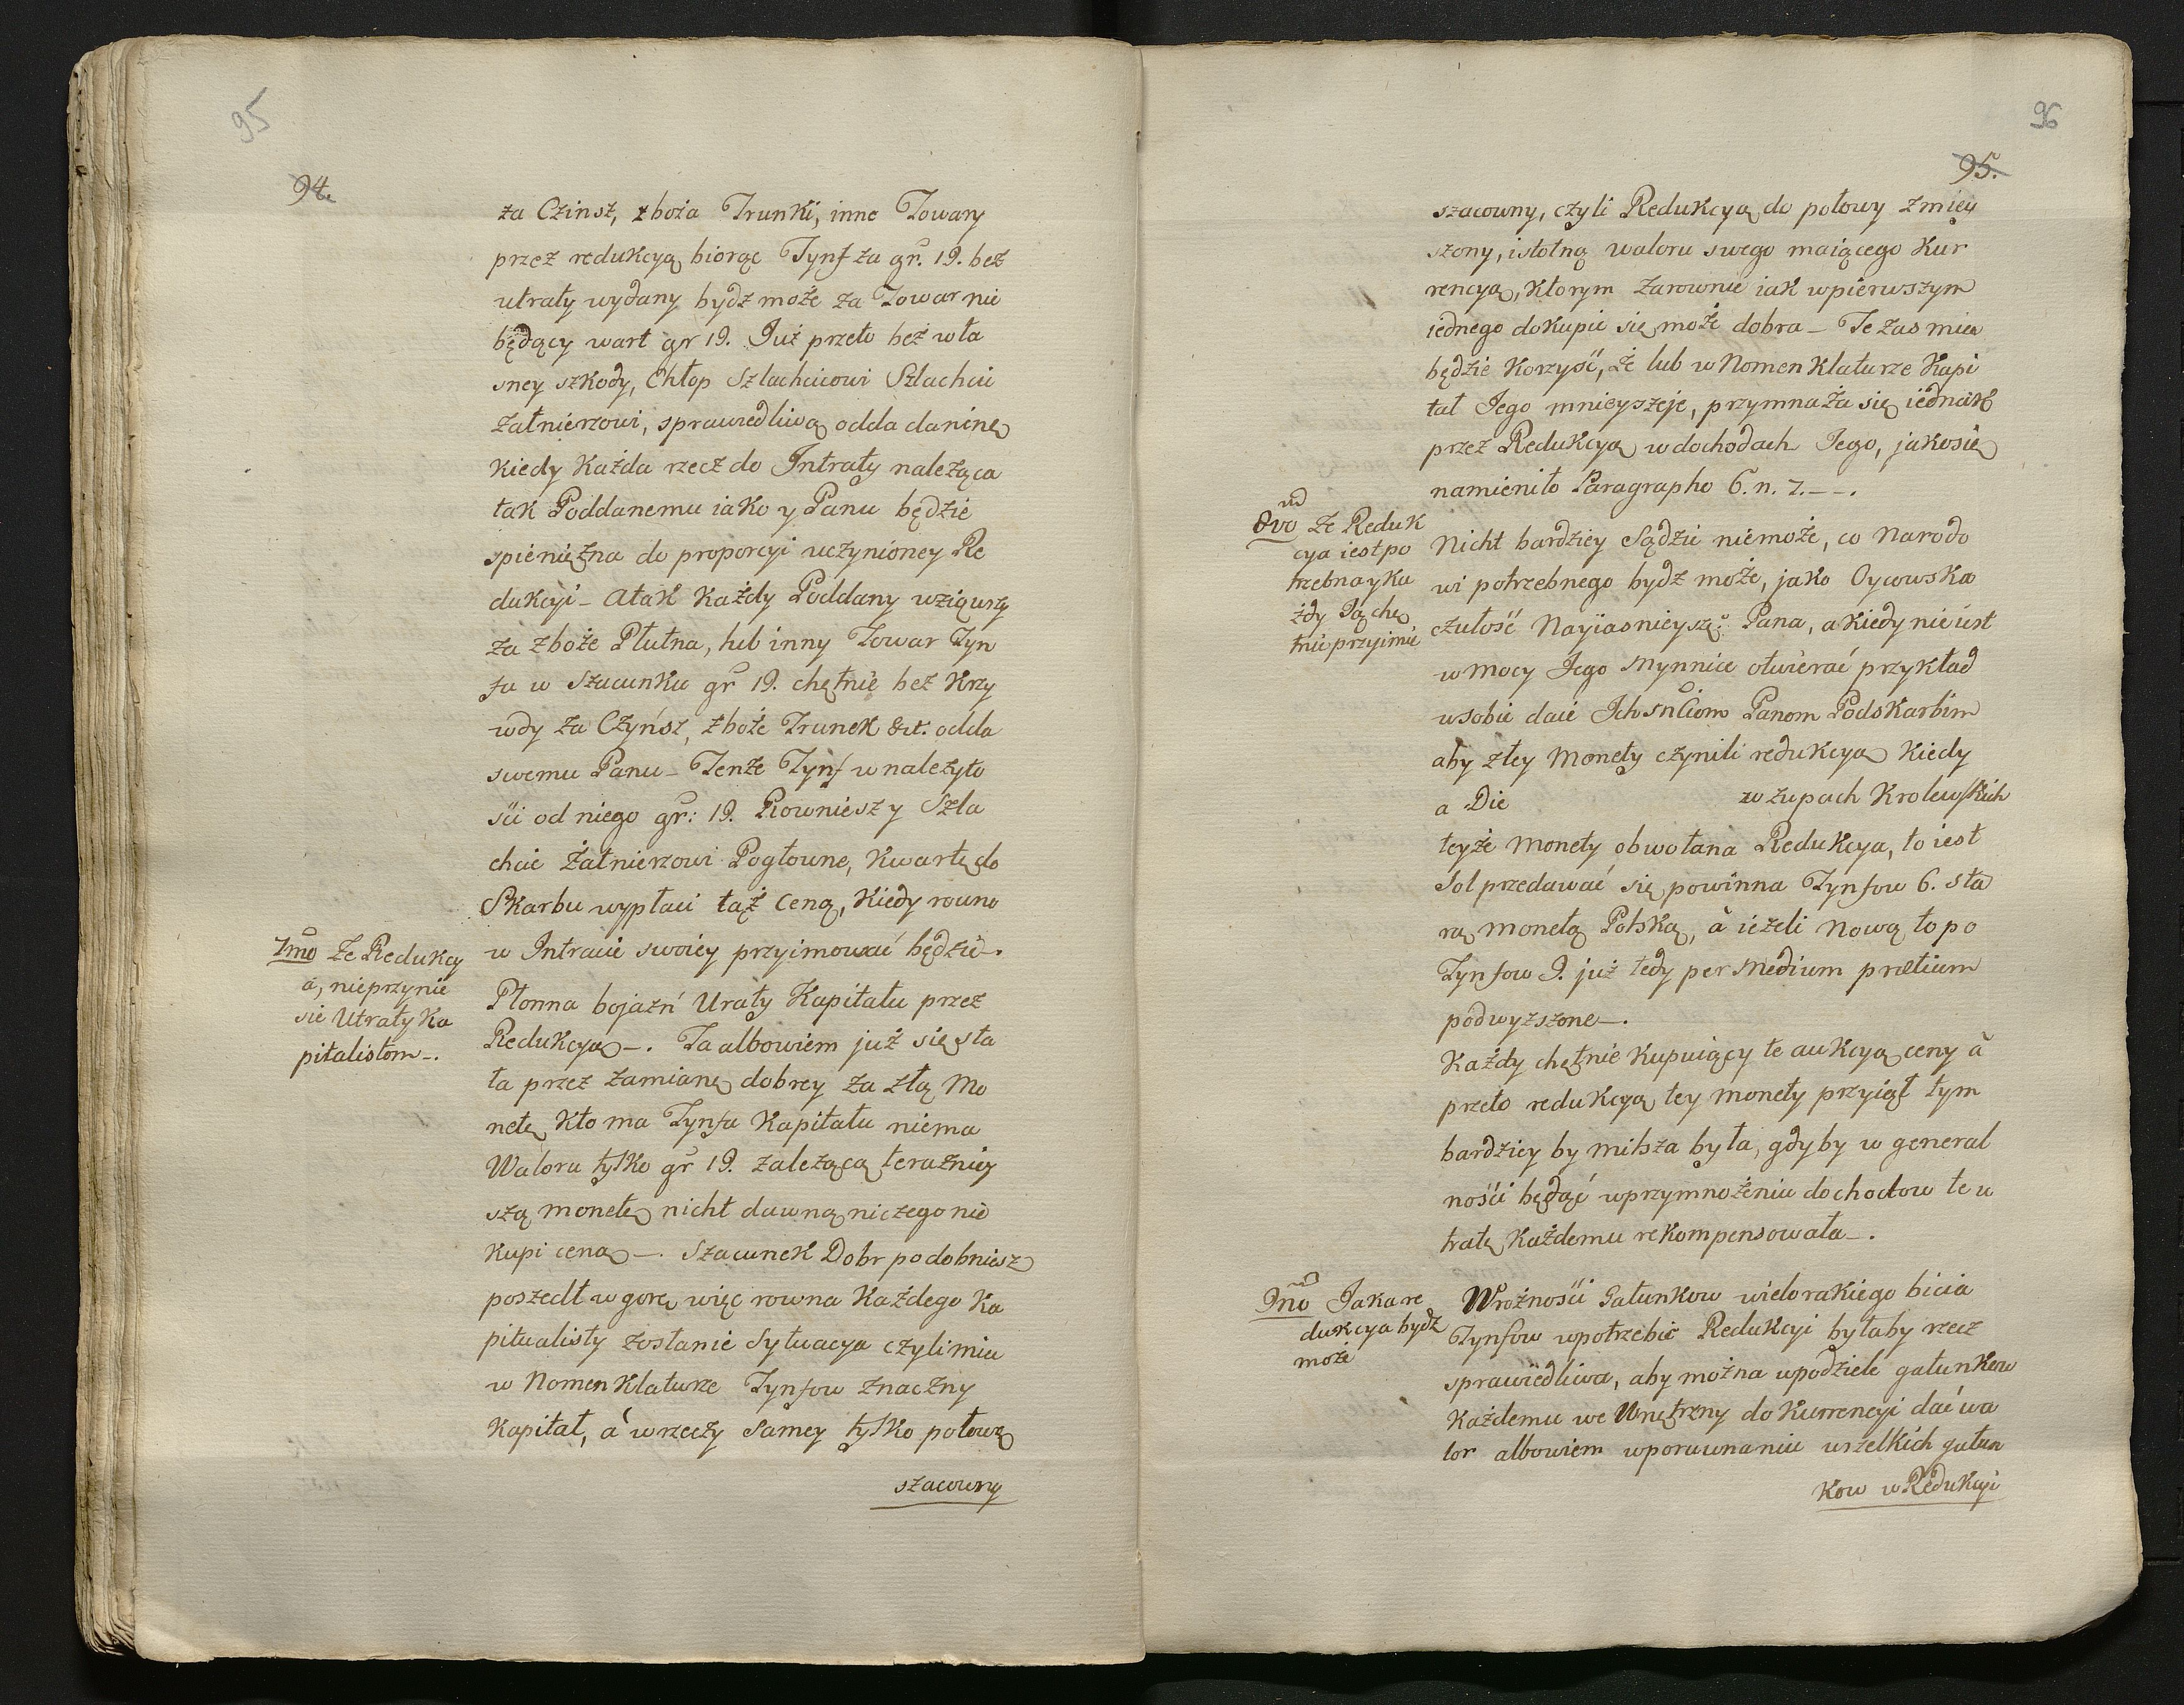 95
94.
za Czinsz, zboża Trunki, inne Towary
przez redukcyą biorąc Tynf za gr. 19. bez
utraty wydany bydz może za Towar nie
będący wart gr 19. Już przeto bez wła
sney szkody, Chłop Szlachcicowi Szlachcic
Załnierzowi, sprawiedliwą odda daninę
kiedy Każda rzecz do Intraty należąca
tak Poddanemu iako y Panu będzie
spieniężna do proporcyi uczynioney Re
dukcyi – atak Każdy Poddany wziąwszy
za zboże Płutna, lub inny Towar Tyn
fa w Szacunku gr 19. chętnie bez Krzy
wdy za Czyńsz, zboże Trunek &ct. odda
swemu Panu – Tenże Tynf w należyto
ści od niego gr: 19. Rowniesz y Szla
chcic Żałnierzowi Pogłowne, Kwartę do
Skarbu wypłaci tąż Ceną, Kiedy rowno
w Intracie swoiey przyimować będzie –.
7mo Ze Redukcy
a, nieprzynie
sie Utraty Ka
pitalistom –.
Płonna bojaźń Uraty Kapitału przez
Redukcyą –. Ta albowiem już się sta
ła przez Zamianę dobrey za złą Mo
netę, Kto ma Tynfa Kapitału niema
Waloru tylko gr 19. zależącą teraźniey
szą monetę nicht dawną niczego nie
Kupi ceną –. Szacunek Dobr podobniesz
poszedł w gorę więc rowna Każdego Ka
pitualisty zostanie Sytuacya czyli miec
w Nomenklaturze Tynfow znaczny
Kapitał, à w rzeczy Samey tylko połowę
szacowny
96
95.
szacowny, czyli Redukcyą do połowy zmiey
szony, istotną waloru swego maiącego Kur
rencyą, Ktorym Zarownie iak wpierwszym
iednego dokupic się może dobra – Te zas miec
będzie Korzyść, że lub w Nomenklaturze Kapi
tał Jego mnieyszeje, przymnaża się iednak
przez Redukcyą w dochodach Jego, jakosię
namieniło Paragrapho 6. n. 7. – –.
8vo Ze Reduk
cya iest po
trzebna y Ka
żdy Ją chę
tnie przyimie
Nicht bardziey Sądzic niemoże, co Narodo
wi potrzebnego bydz może, jako Oycowska
czułość Nayiasnieysze° Pana, a kiedy nieiest
w mocy Jego Mynnice otwierać przykład
usobie daie Ich Panom Podskarbim
aby złey Monety czynili redukcyą Kiedy
a Die w żupach Krolewskich
teyże Monety obwołana Redukcya, to iest
Sol przedawać się powinna Tynfow 6. sta
rą monetą Polską, à ieżeli Nową to po
Tynfow 9. już tedy per Medium prætium
podwyzszone –.
Każdy chętnie Kupuiący te aukcyą ceny à
przeto redukcyą tey Monety przyiął tym
bardziey by milsza była, gdyby w general
ności będąć wprzymnożeniu dochodow te u
tratę Każdemu rekompensowała –.
9no Jaka re
dukcya bydz
może
Wrożności Gatunkow wielorakiego bicia
Tynfow wpotrzebie Redukcyi byłaby rzecz
sprawiedliwa, aby można wpodziele gatunkow
Każdemu we Wnętrzny do Kurrencyi dać wa
lor albowiem wporuwnaniu wszelkich gatun
Kow w Redukcyi